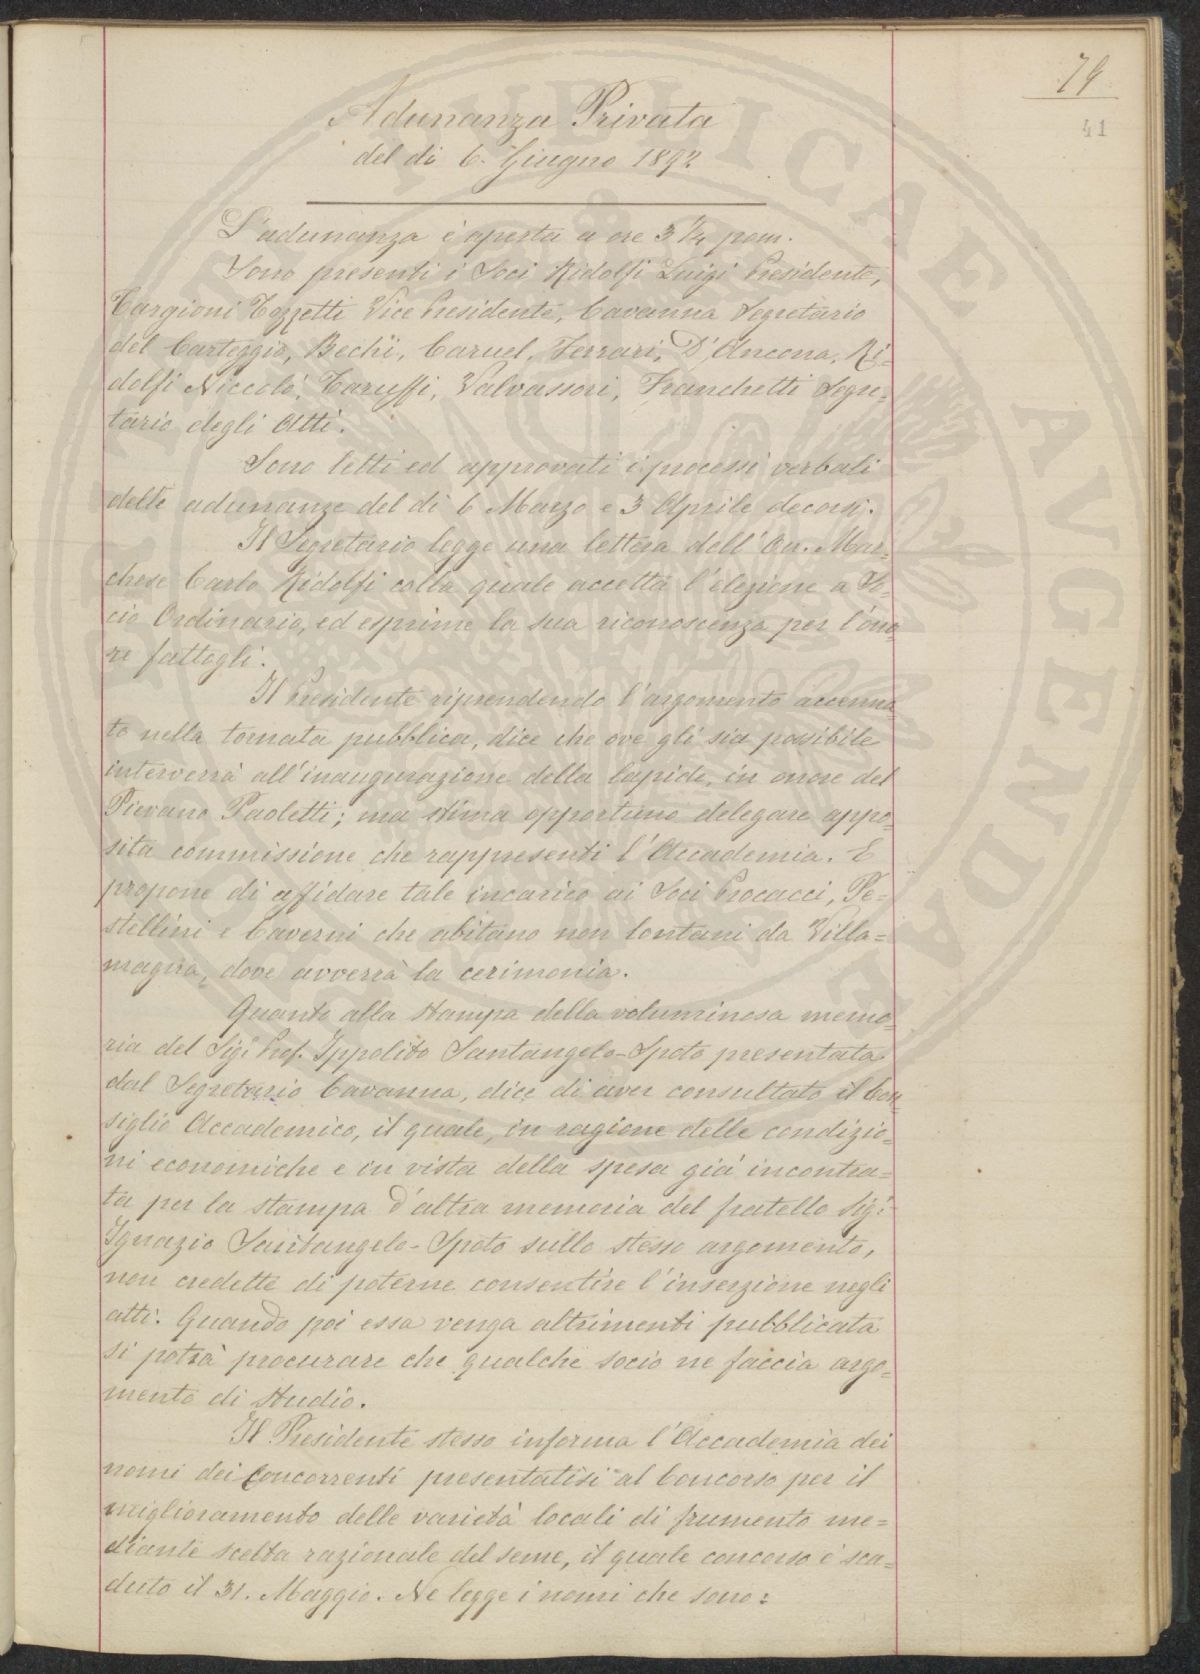 79
41
Adunanza Privata
del dì 6. Giugno 1892
L'adunanza è aperta a ore 3 1/4 pom.
Sono presenti i Soci Ridolfi Luigi Presidente,
Targioni Tozzetti Vice Presidente, Cavanna Segretario
del Carteggio, Bechi, Caruel, Ferrari, D'Ancona, Ri=
dolfi Niccolò, Taruffi, Valvassori, Franchetti Segre=
tario degli Atti.
Sono letti ed approvati i processi verbali
delle adunanze del dì 6 Marzo e 3 Aprile decorsi.
Il Segretario legge una lettera dell'On. Mar=
chese Carlo Ridolfi colla quale accetta l'elezione a So=
cio Ordinario, ed esprime la sua riconoscenza per l'ono=
re fattogli.
Il Presidente riprendendo l'argomento accenna
to nella tornata pubblica, dice che ove gli sia possibile
interverrà all'inaugurazione della lapide, in onore del
Pievano Paoletti; ma stima opportuno delegare appo=
sita commissione che rappresenti l'Accademia. E
propone di affidare tale incarico ai Soci Procacci, Pe=
stellini e Caverni che abitano non lontani da Villa=
magna, dove avverrà la cerimonia.
Quanto alla stampa della voluminosa memo=
ria del Sig. Prof. Ippolito Santangelo-Spoto presentata
dal Segretario Cavanna, dice di aver consultato il Con=
siglio Accademico, il quale, in ragione delle condizio=
ni economiche e in vista della spesa già incontra=
ta per la stampa d'altra memoria del fratello Sig.
Ignazio Santangelo-Spoto sullo stesso argomento,
non credette di poterne consentire l'inserzione negli
atti. Quando poi essa venga altrimenti pubblicata
si potrà procurare che qualche socio ne faccia argo=
mento di studio.
Il Presidente stesso informa l'Accademia dei
nomi dei concorrenti presentatisi al Concorso per il
miglioramento delle varietà locali di frumento me=
diante scelta razionale del seme, il quale concorso è sca=
duto il 31. Maggio. Ne legge i nomi che sono: